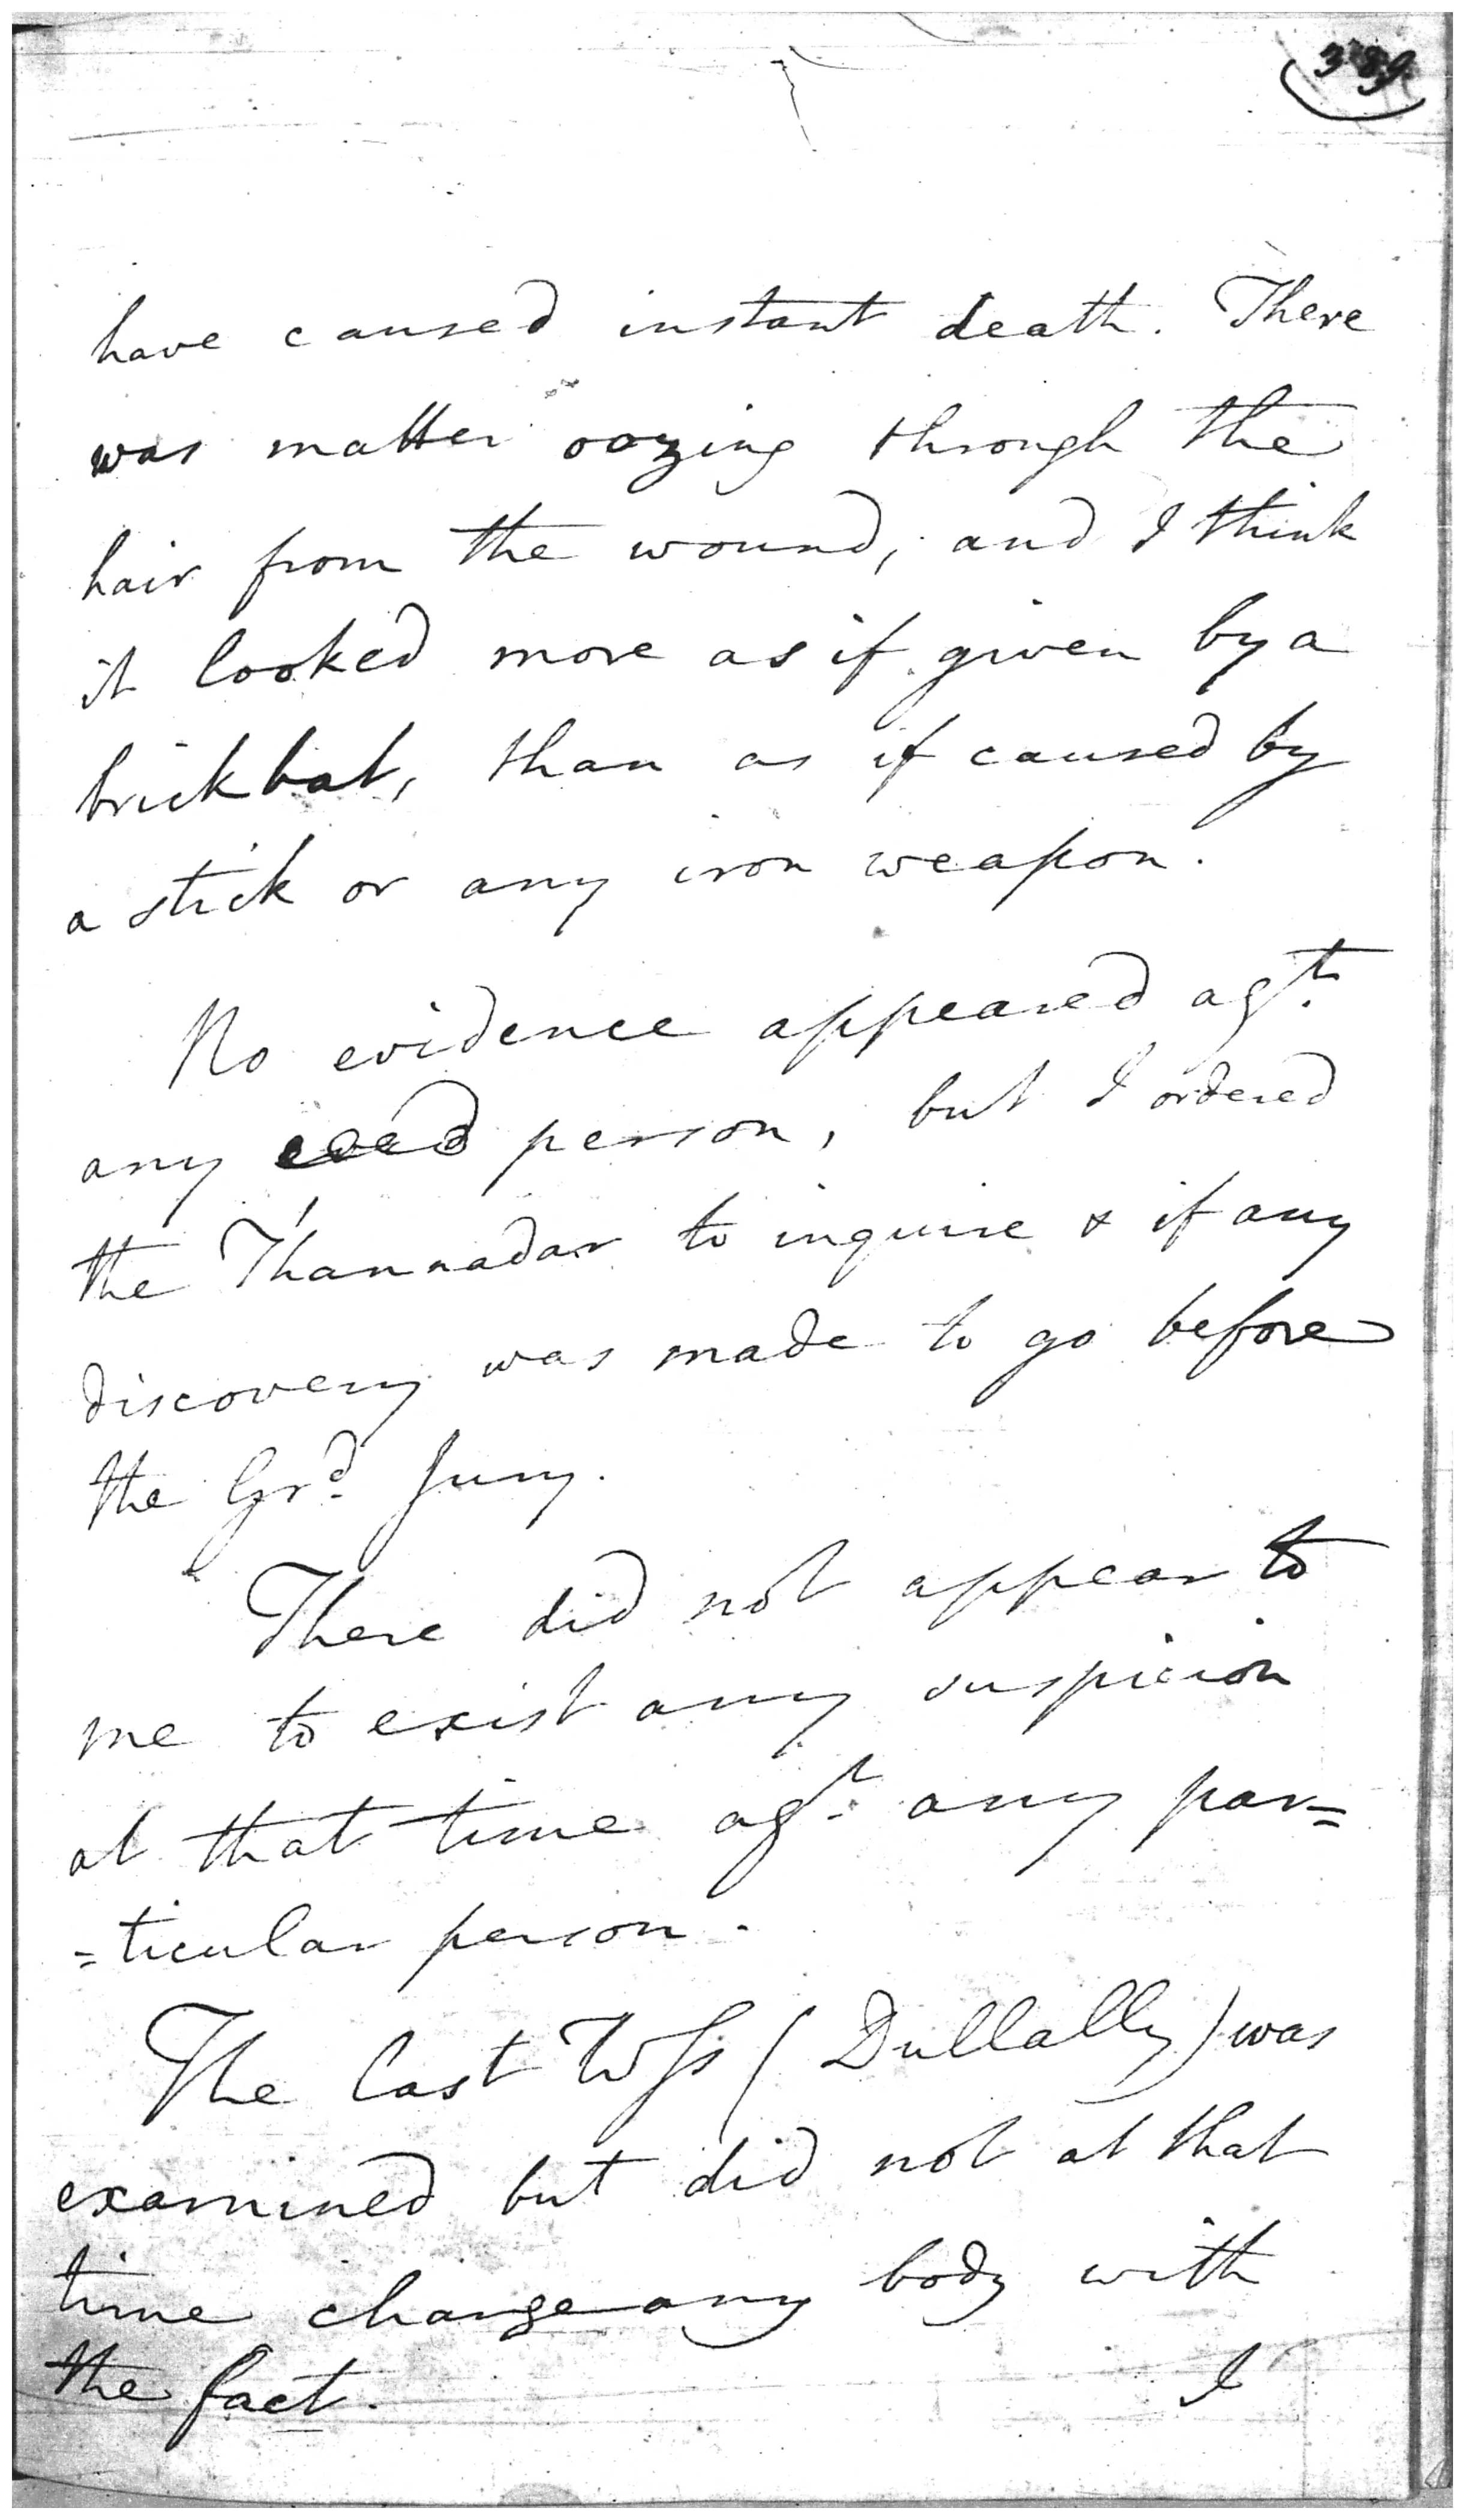 389.
have caused instant death. There
was matter oozing through the
hair from the wound, and I think
it looked more as if given by a
brickbat, than as if caused by
a stick or any iron weapon.
No evidence appeared agt.
any person, but I ordered
the Thannadar to inquire & if any
discovery was made to go before
the Grd Jury.
There did not appear to
me to exist any suspicion
at that time agt. any par=
=ticular person.
The last Wss (Dullally) was
examined but did not at that
time charge any body with
the fact. I